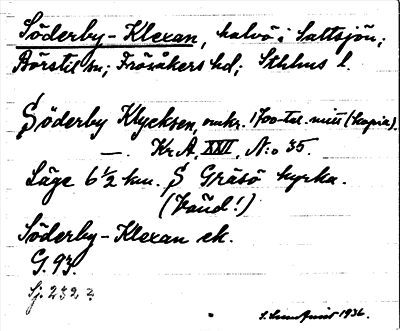 Söderby-Klexan, halvö i Saltsjön;
Börstil sn; Frösåkers hd; Sthlms l.
Söderby Klycksen, omkr. 1700-tal. mitt (kopia).
—. Kr. A. XXVI, N:o 35.
Läge 6 1/2 km. S Gräsö kyrka.
(Vänd!)
Söderby-Klexan ek.
G. 93.
Sj. 232
1936.